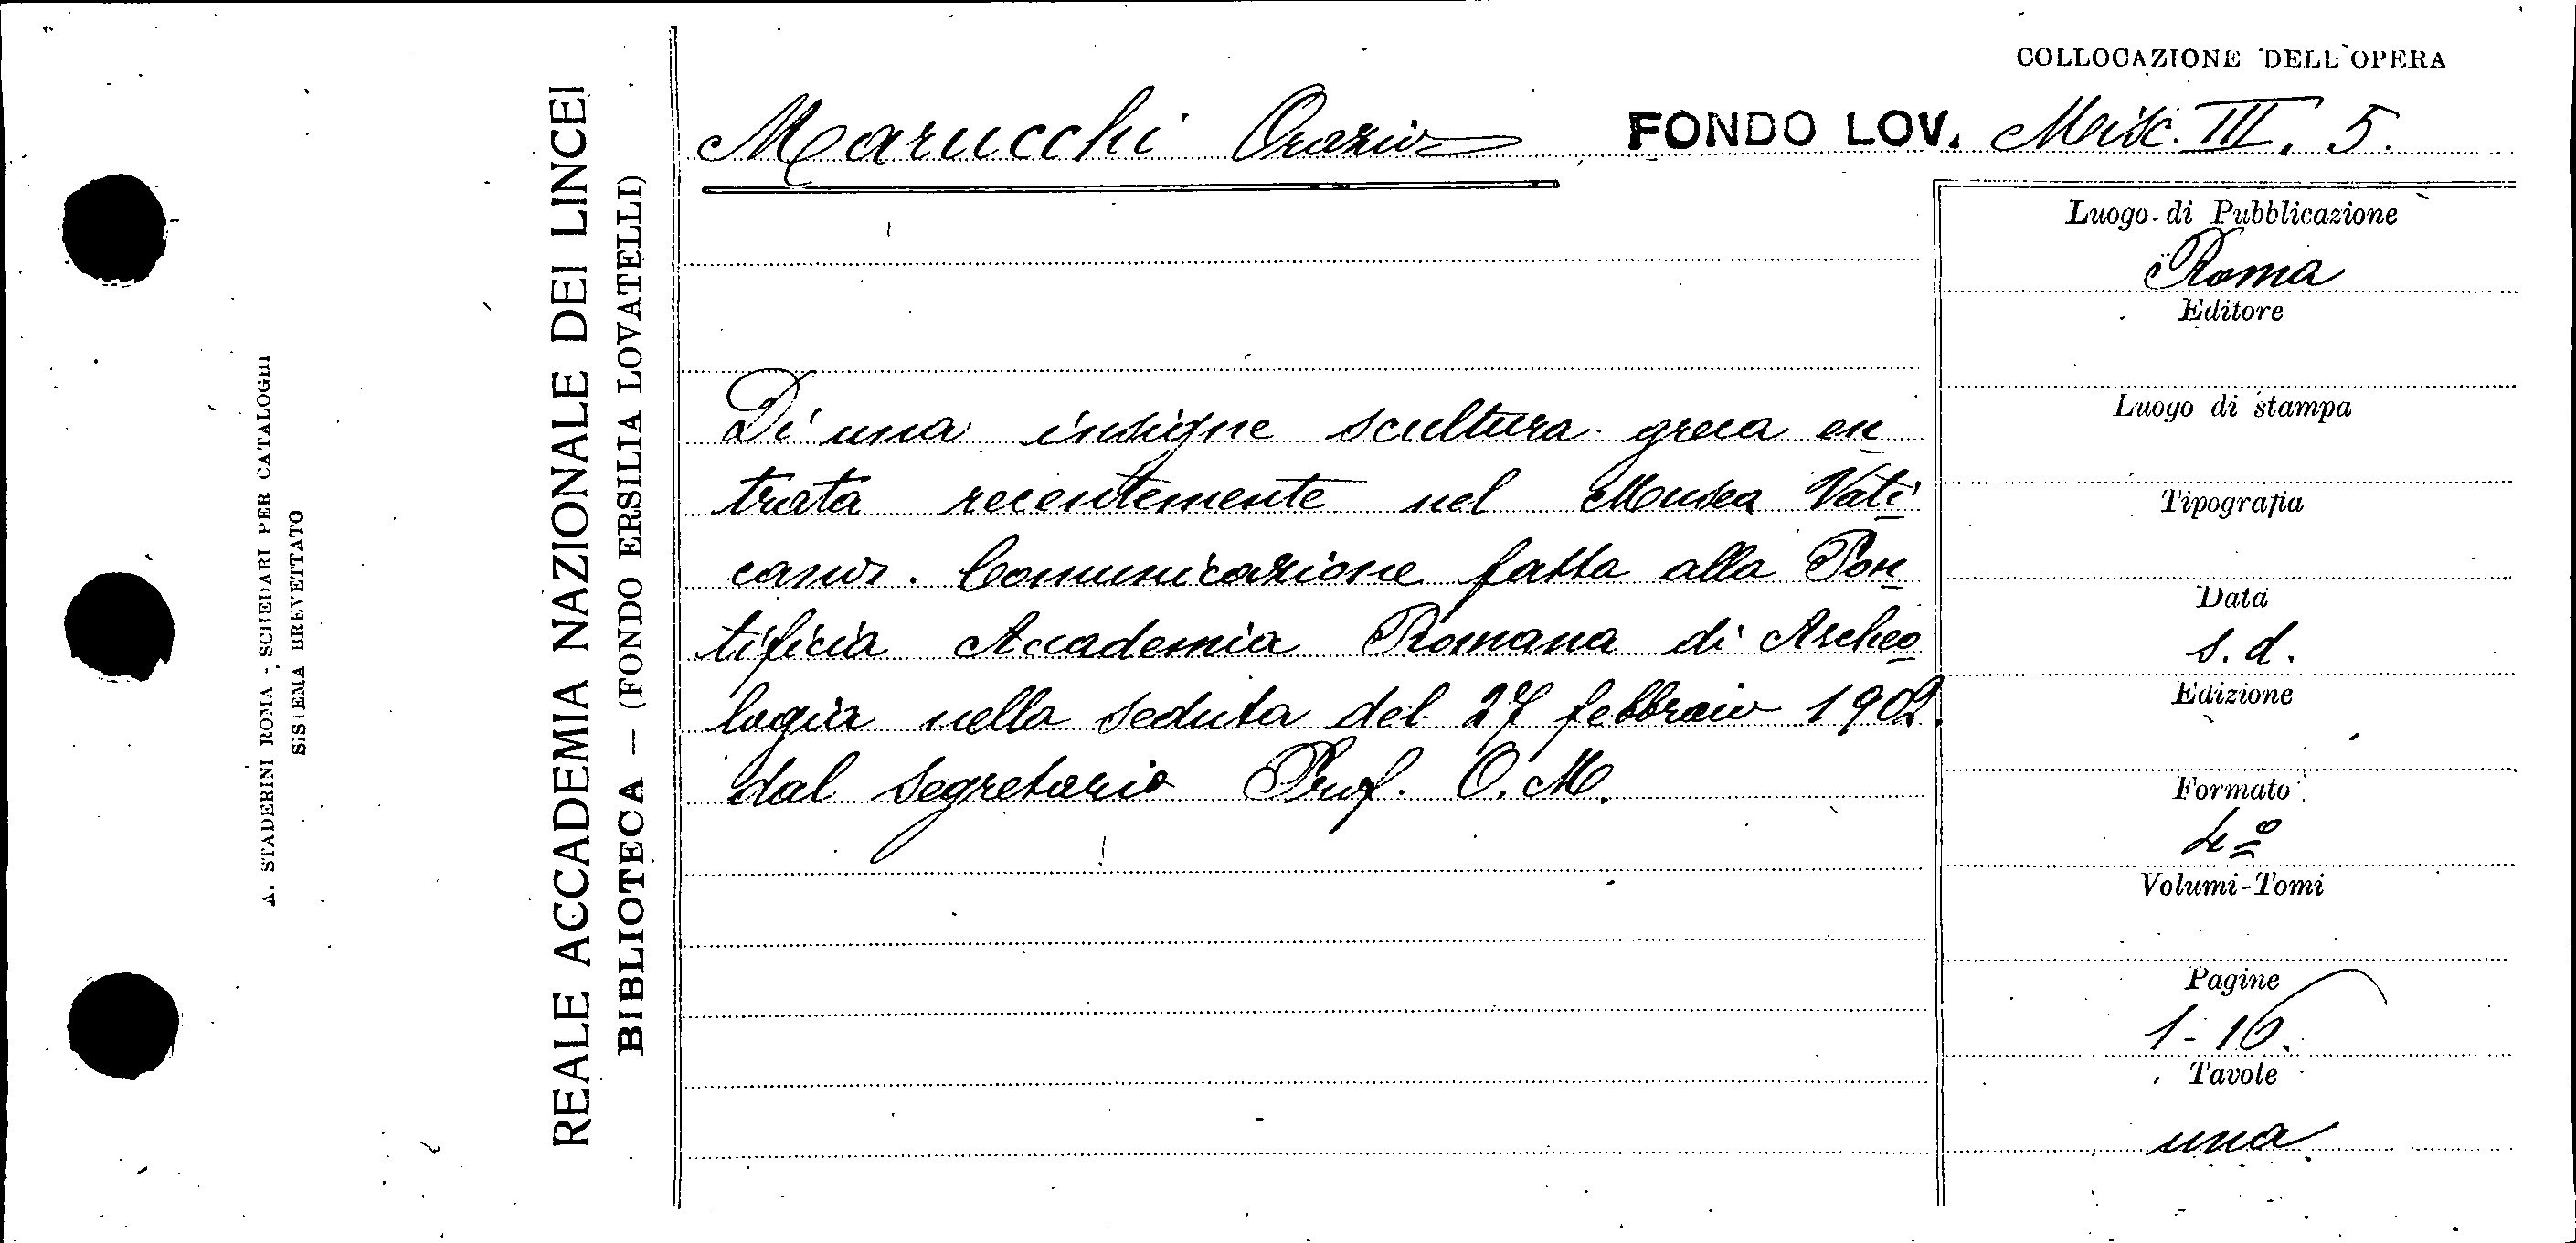 COLLOCAZIONE DELL'OPERA
Marucchi Orazio FONDO LOV. Misc. III. 5.
Di una insigne scultura greca en
trata recentemente nel Museo Vati
cano. Comunicazione fatta alla Pon
tificia Accademia Romana di Archeo
logia nella seduta del 27 febbraio 1902.
dal segretario Prof. O. M.
Luogo di Pubblicazione
Roma
Editore
Luogo di stampa
Tipografia
Data
s. d.
Edizione
Formato
4º
Volumi-Tomi
Pagine
1-16.
Tavole
una
REALE ACCADEMIA NAZIONALE DEI LINCEI
BIBLIOTECA — (FONDO ERSILIA LOVATELLI)
A. STADERINI ROMA - SCHEDARI PER CATALOGHI
SISTEMA BREVETTATO